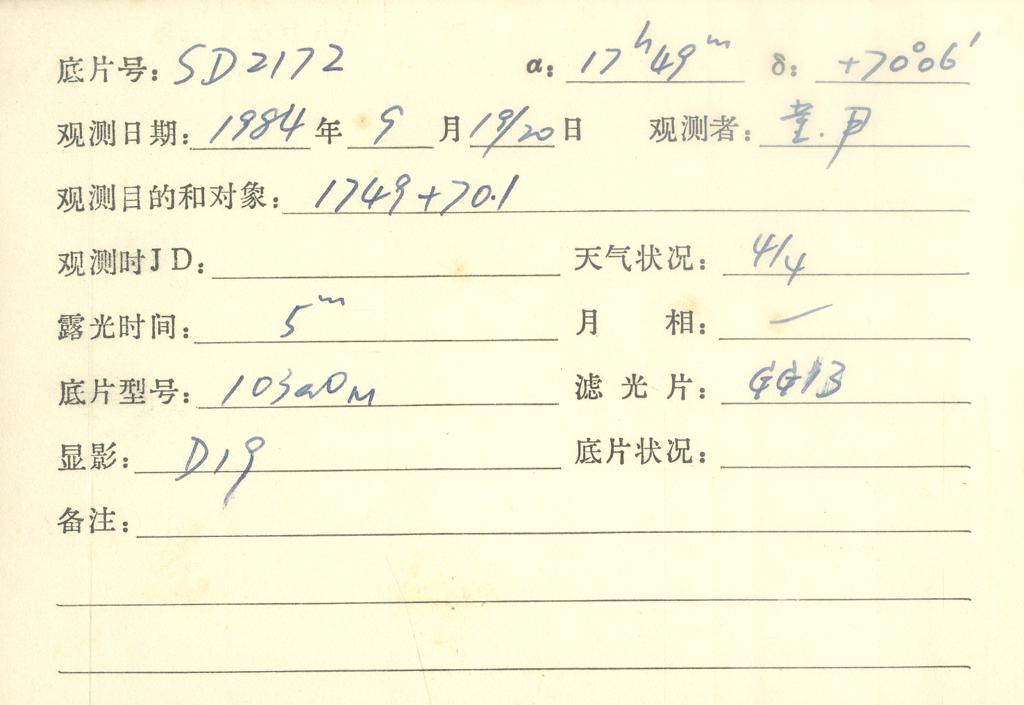 底片号: SD2172 α: 17ʰ49ᵐ δ: +70°06′
观测日期: 1984年 9月19/20日 观测者: 童.
观测目的和对象: 1749+70.1
观测时JD: 天气状况: 4/4
露光时间: 5ᵐ 月 相: 一
底片型号: 103aO 滤光片: GG13
显影: D19 底片状况:
备注: